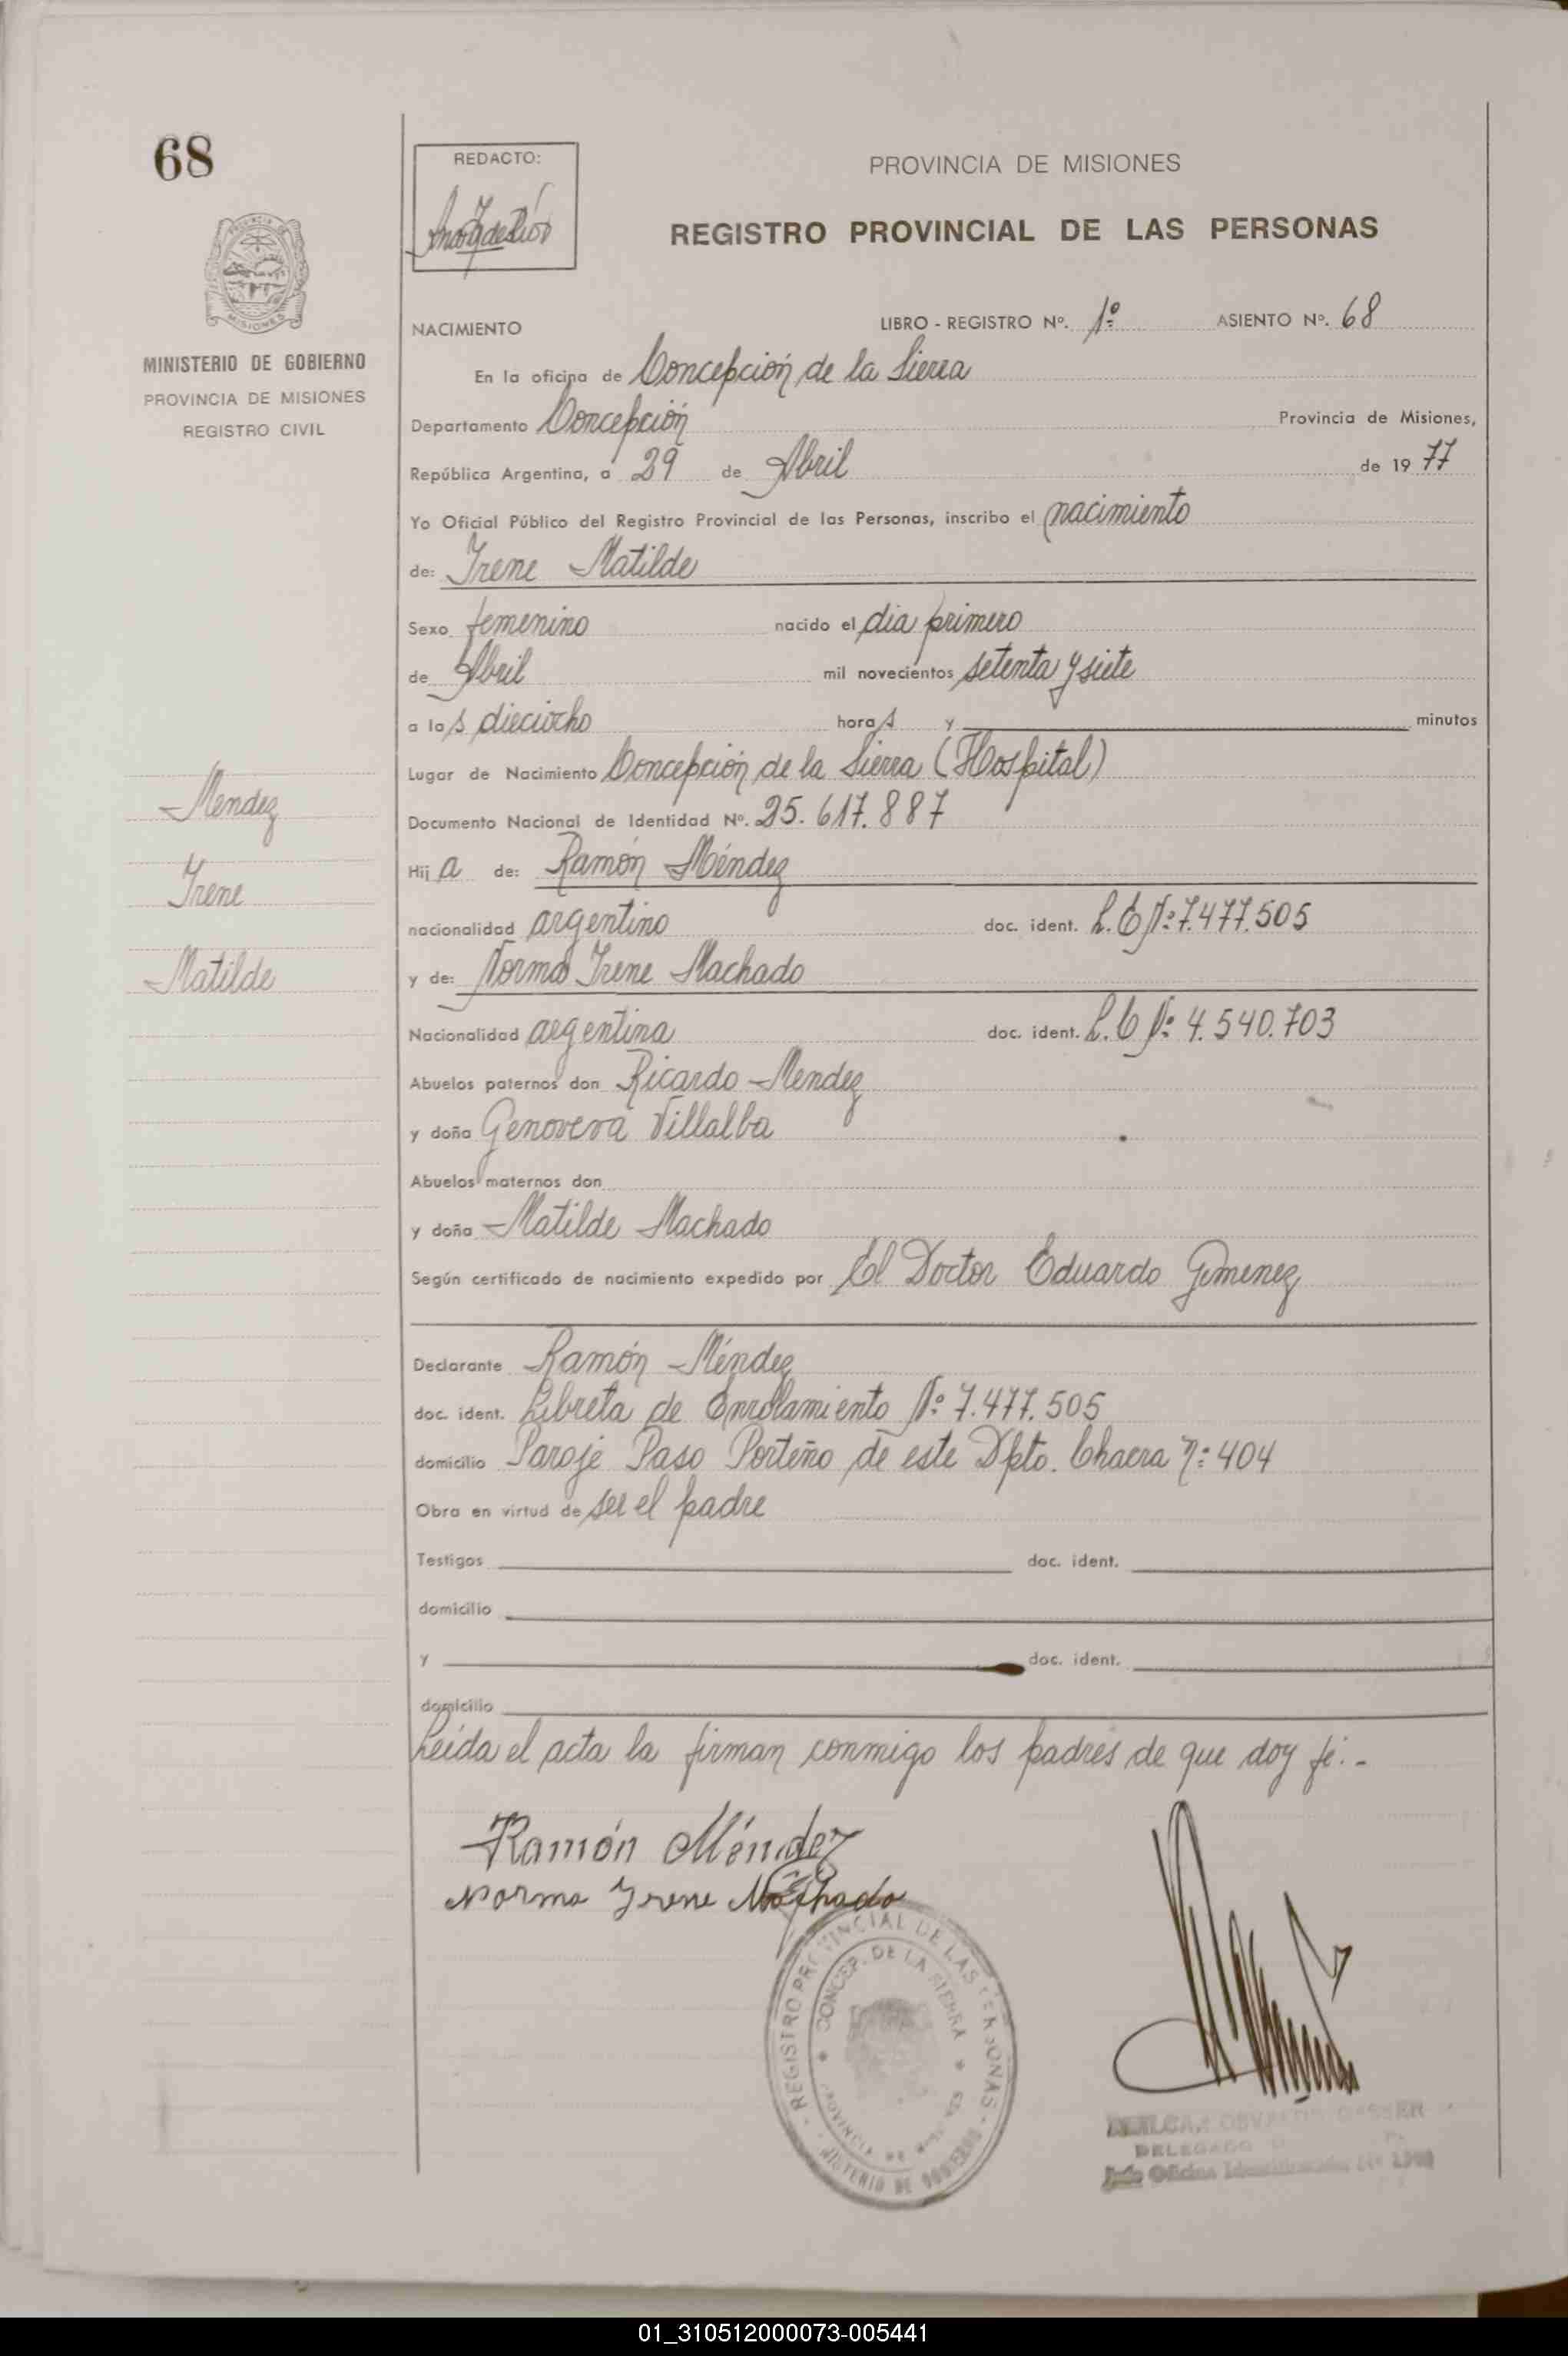 68
REDACTO:
PROVINCIA DE MISIONES
REGISTRO PROVINCIAL DE LAS PERSONAS
PROVINCIA DE
MISIONES
MINISTERIO DE GOBIERNO
PROVINCIA DE MISIONES
REGISTRO CIVIL
NACIMIENTO LIBRO - REGISTRO Nº. 1º ASIENTO Nº. 68
En la oficina de Concepción de la Sierra
Departamento Concepción Provincia de Misiones,
República Argentina, a 29 de Abril de 1977
Yo Oficial Público del Registro Provincial de las Personas, inscribo el nacimiento
de: Irene Matilde
Sexo femenino nacido el dia primero
de Abril mil novecientos setenta y siete
a las dieciocho horas y minutos
Lugar de Nacimiento Concepción de la Sierra (Hospital)
Documento Nacional de Identidad Nº. 25.617.887
Hija de: Ramón Méndez
nacionalidad argentino doc. ident. L.E Nº 7.477.505
y de: Norma Irene Machado
Nacionalidad argentina doc. ident. L.C Nº 4.540.703
Abuelos paternos don Ricardo Mendez
y doña Genoveva Villalba
Abuelos maternos don
y doña Matilde Machado
Según certificado de nacimiento expedido por El Doctor Eduardo Gimenez
Declarante Ramón Méndez
doc. ident. Libreta de Enrolamiento Nº 7.477.505
domicilio Paraje Paso Porteño de este Dpto. Chacra nº 404
Obra en virtud de ser el padre
Testigos doc. ident.
domicilio
y doc. ident.
domicilio
Leida el acta la firman conmigo los padres de que doy fé.-
Mendez
Irene
Matilde
Ramón Méndez
Norma Irene Machado
REGISTRO PROVINCIAL DE LAS PERSONAS - MINISTERIO DE GOBIERNO
CONCEP. DE LA SIERRA
PROVINCIA DE MISIONES
DELEGADO
Jefe Oficina
01_310512000073-005441